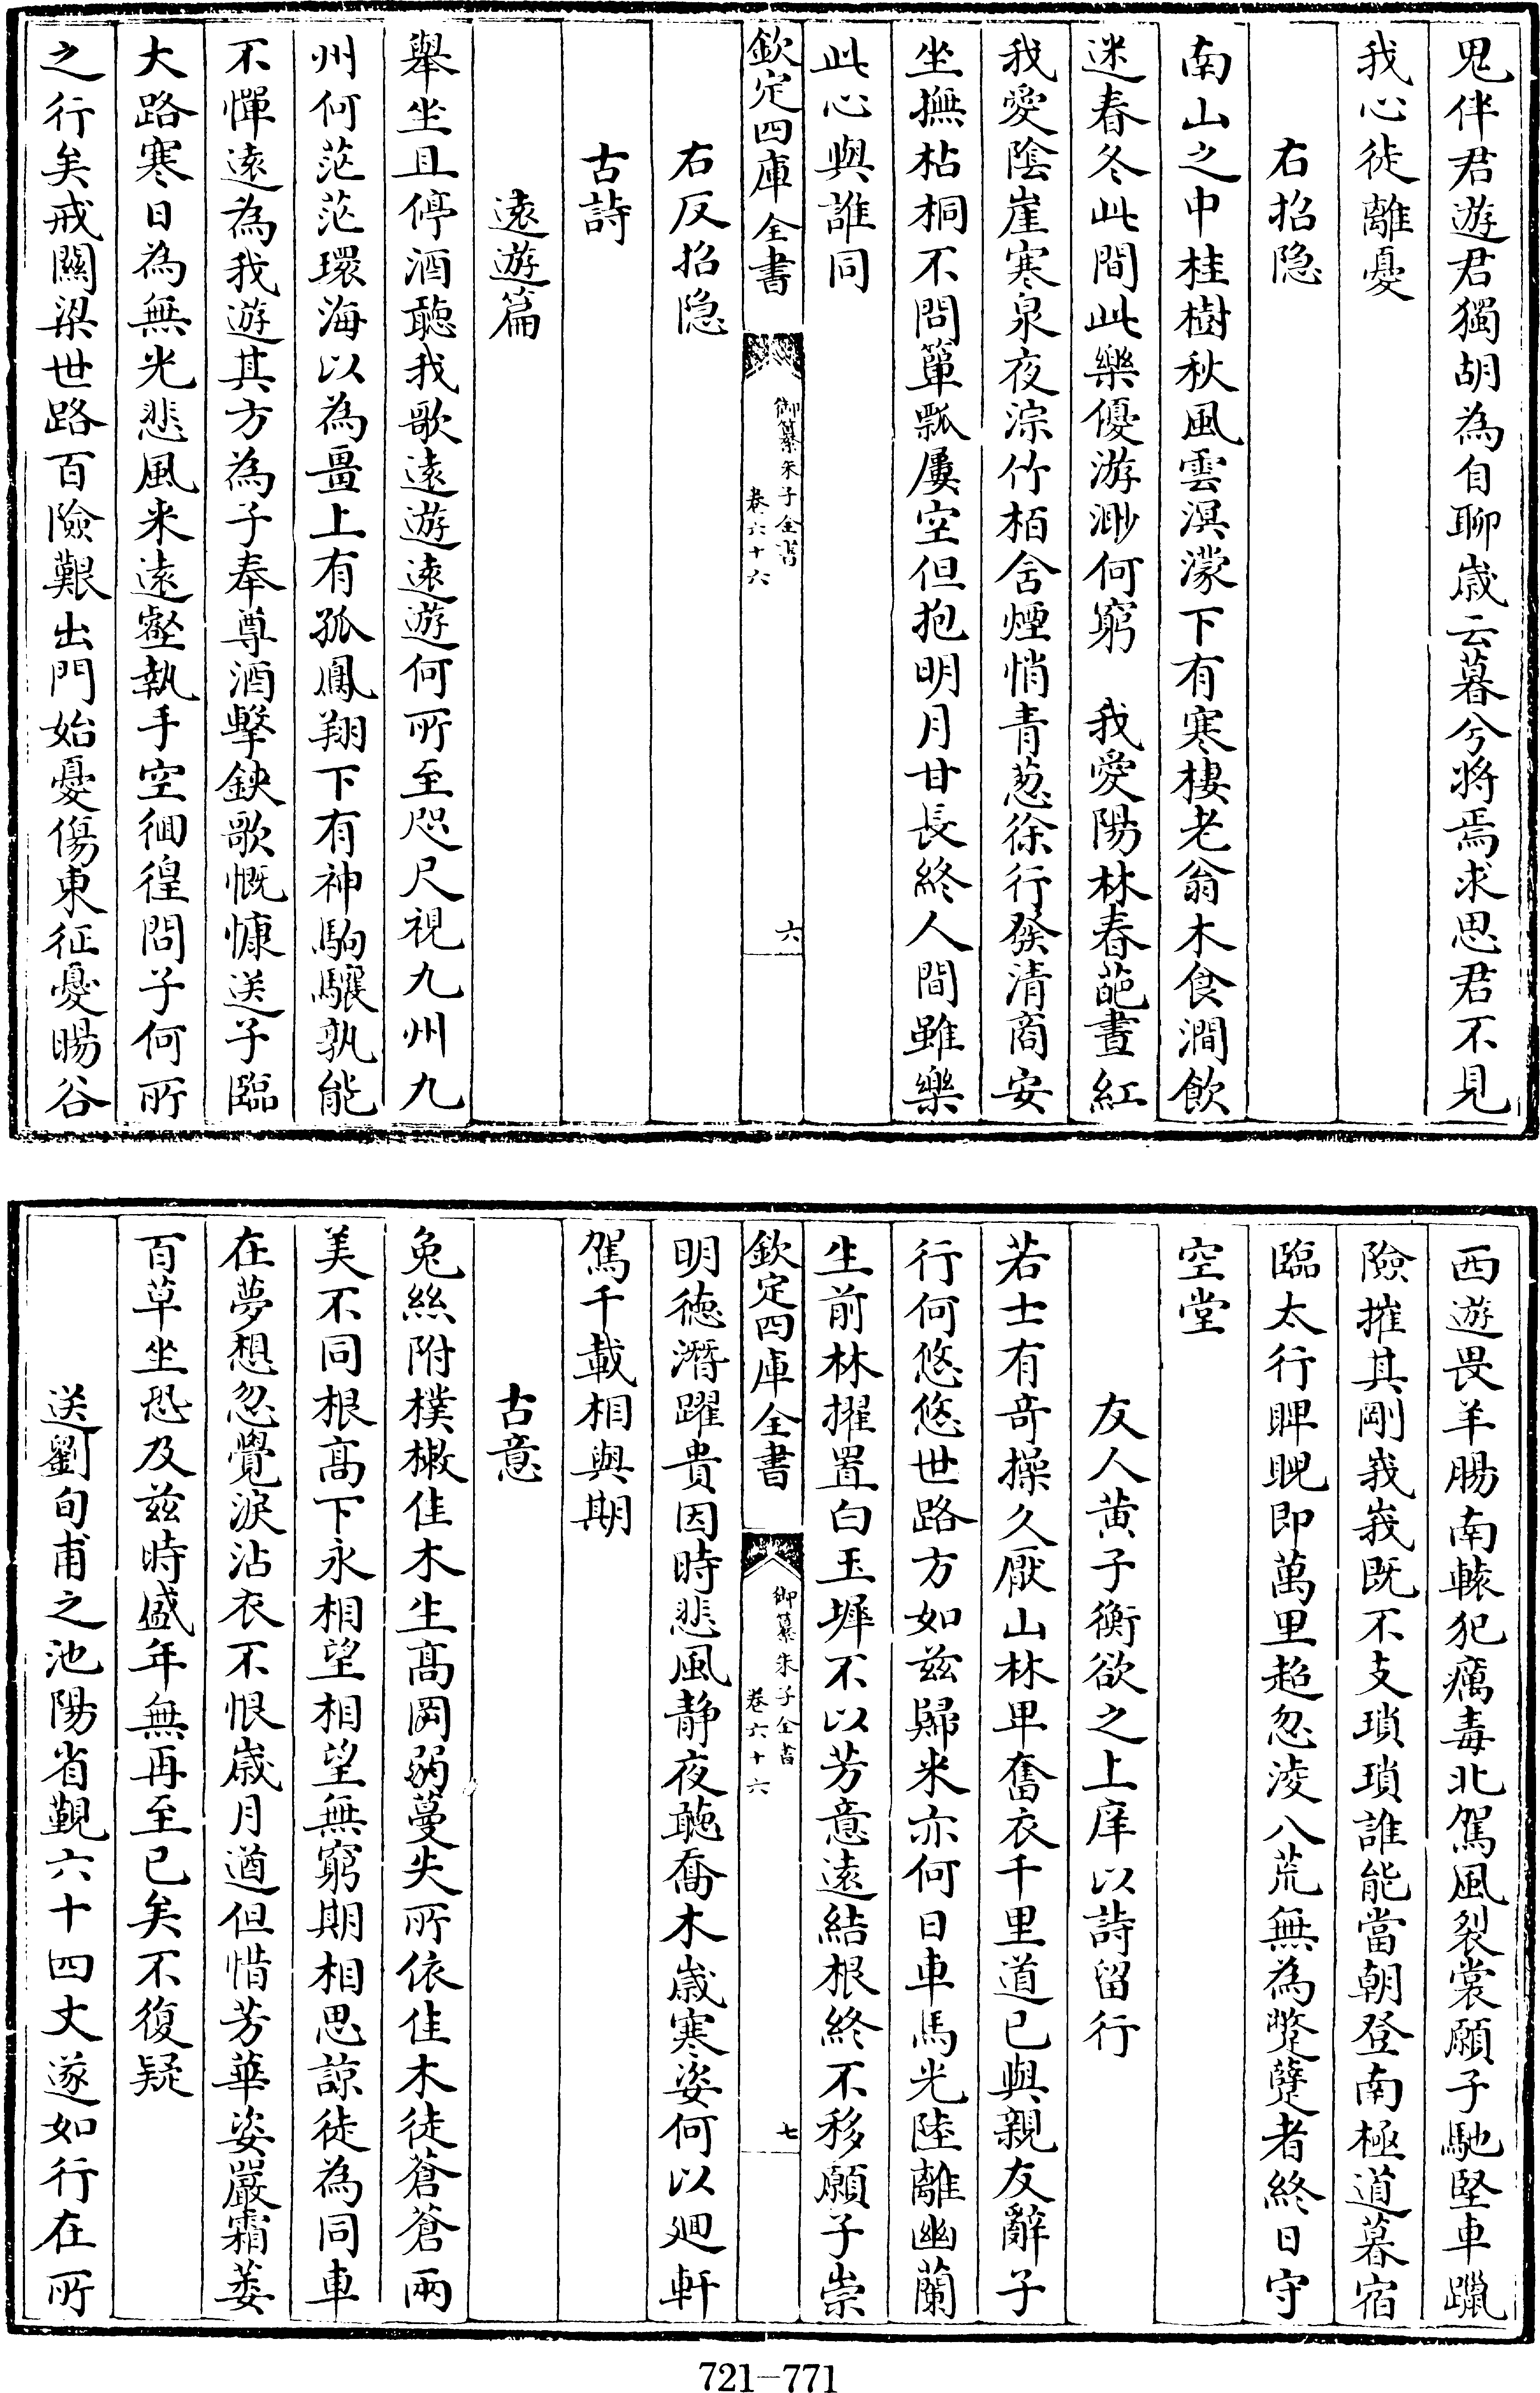 鬼伴君遊君獨胡為自聊歲云暮兮將焉求思君不見
我心徒離憂
右招隐
南山之中桂樹秋風雲溟濛下有寒棲老翁木食澗飲
迷春冬此間此樂優游渺何窮　我愛陽林春葩晝紅
我愛陰崖寒泉夜淙竹栢含煙悄青葱徐行發清商安
坐撫枯桐不問簞瓢屢空但抱明月甘長終人間雖樂
此心與誰同
欽定四庫全書
御纂朱子全書
卷六十六
六
右反招隐
古詩
遠遊篇
舉坐且停酒聽我歌遠遊遠遊何所至咫尺視九州九
州何茫茫環海以為畺上有孤鳳翔下有神駒驤孰能
不憚遠為我遊其方為子奉尊酒擊鋏歌慨慷送子臨
大路寒日為無光悲風来遠壑執手空徊徨問子何所
之行矣戒關梁世路百險艱出門始憂傷東征憂暘谷
西遊畏羊腸南轅犯癘毒北駕風裂裳願子馳堅車躐
險摧其剛峩峩既不支瑣瑣誰能當朝登南極道暮宿
臨太行睥睨即萬里超忽淩八荒無為蹩躠者終日守
空堂
友人黄子衡欲之上庠以詩留行
若士有竒操久厭山林卑奮衣千里道已與親友辭子
行何悠悠世路方如兹歸来亦何日車馬光陸離幽蘭
生前林擢置白玉墀不以芳意遠結根終不移願子崇
欽定四庫全書
御纂朱子全書
卷六十六
七
明徳潛躍貴因時悲風静夜聽喬木歲寒姿何以廻軒
駕千載相與期
古意
兔絲附樸樕佳木生髙岡弱蔓失所依佳木徒蒼蒼兩
美不同根髙下永相望相望無窮期相思諒徒為同車
在夢想忽覺淚沾衣不恨歲月遒但惜芳華姿嚴霜萎
百草坐恐及兹時盛年無再至已矣不復疑
送劉旬甫之池陽省覲六十四丈遂如行在所
721—771